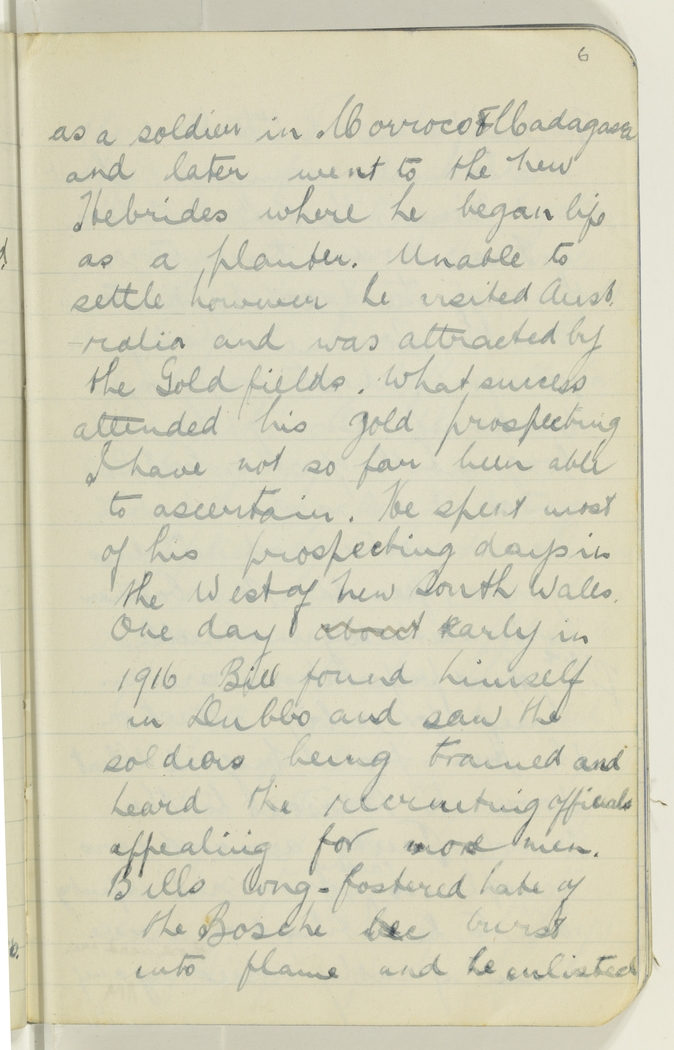 6
as a soldier in Morroco & Madagascar
and later went to the New
Hebrides where he began life
as a planter. Unable to
settle however he visited Aust.
-ralia and was attracted by
the Gold fields. What success
attended his gold prospecting
I have not so far been able
to ascertain. He spent most
of his prospecting days in
the West of New South Wales.
One day about Early in
1916 Bill found himself
in Dubbo and saw the
soldiers being trained and
heard the recruiting officials
appealing for more men.
Bills long-fostered hate of
the Bosche bec burst
into flame and he enlisted